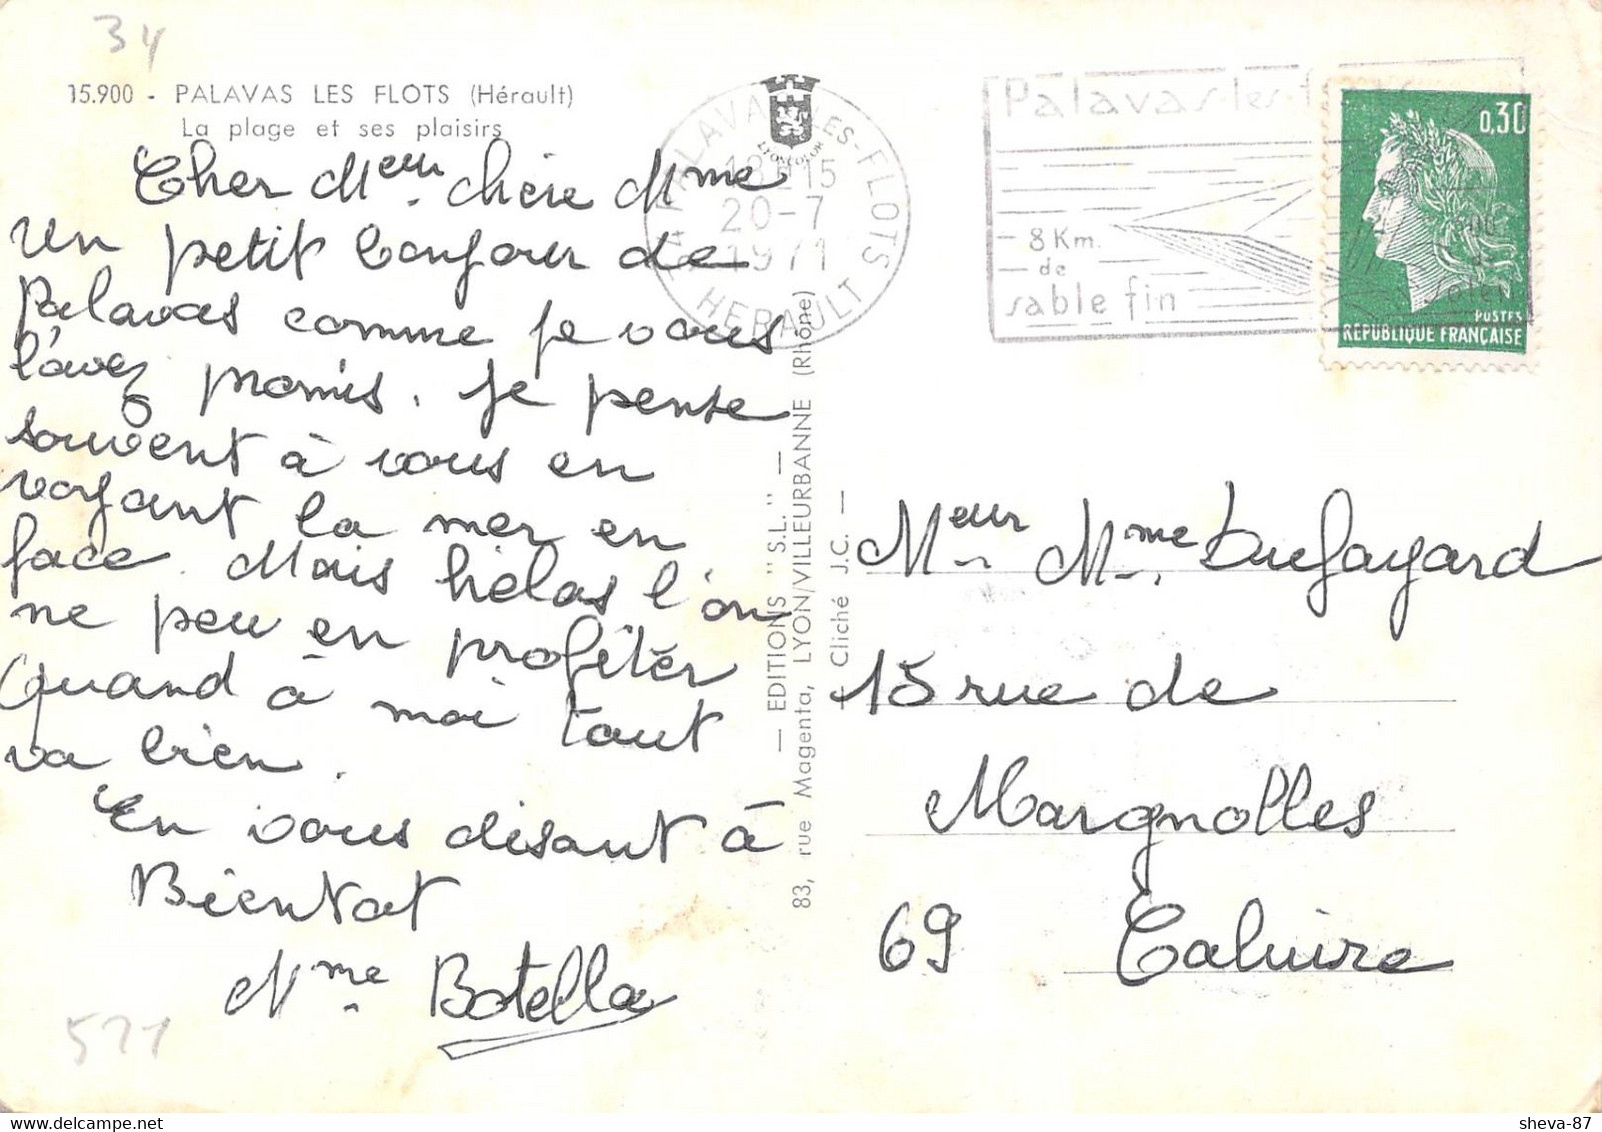 34
15.900 - PALAVAS LES FLOTS (Hérault)
La plage et ses plaisirs
Cher Meur. chère Mme
Un petit bonjour de
Palavas comme je vous
l'avez promis. Je pense
souvent à vous en
voyant la mer en
face. Mais hélas l'on
ne peu en profiter
Quand à moi tout
va bien.
En vous disant à
Bientot
Mme Botella
521
LYONCOLOR
34 PALAVAS-LES-FLOTS
18H15
20-7
1971
HERAULT
Palavas les
8 Km.
de
sable fin
0,30
POSTES
REPUBLIQUE FRANÇAISE
— EDITIONS "S.L." —
83, rue Magenta, LYON/VILLEURBANNE (Rhône)
Cliché J.C. —
Meur Mme Dufayard
15 rue de
Margnolles
69 Caluire
sheva-87